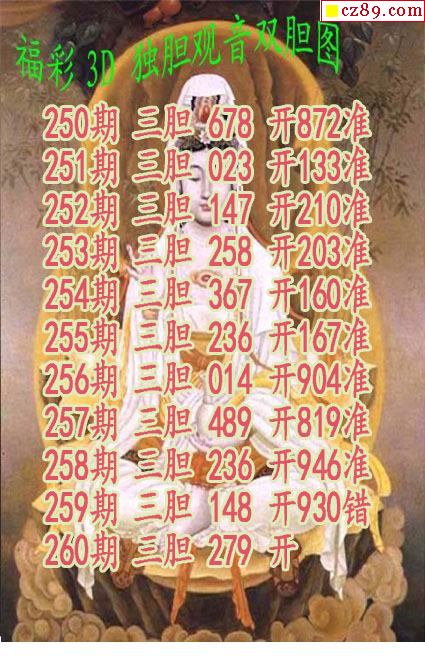 cz89.com
福彩 3D 独胆观音双胆图
250期 三胆 678 开872准
251期 三胆 023 开133准
252期 三胆 147 开210准
253期 三胆 258 开203准
254期 三胆 367 开160准
255期 三胆 236 开167准
256期 三胆 014 开904准
257期 三胆 489 开819准
258期 三胆 236 开946准
259期 三胆 148 开930错
260期 三胆 279 开